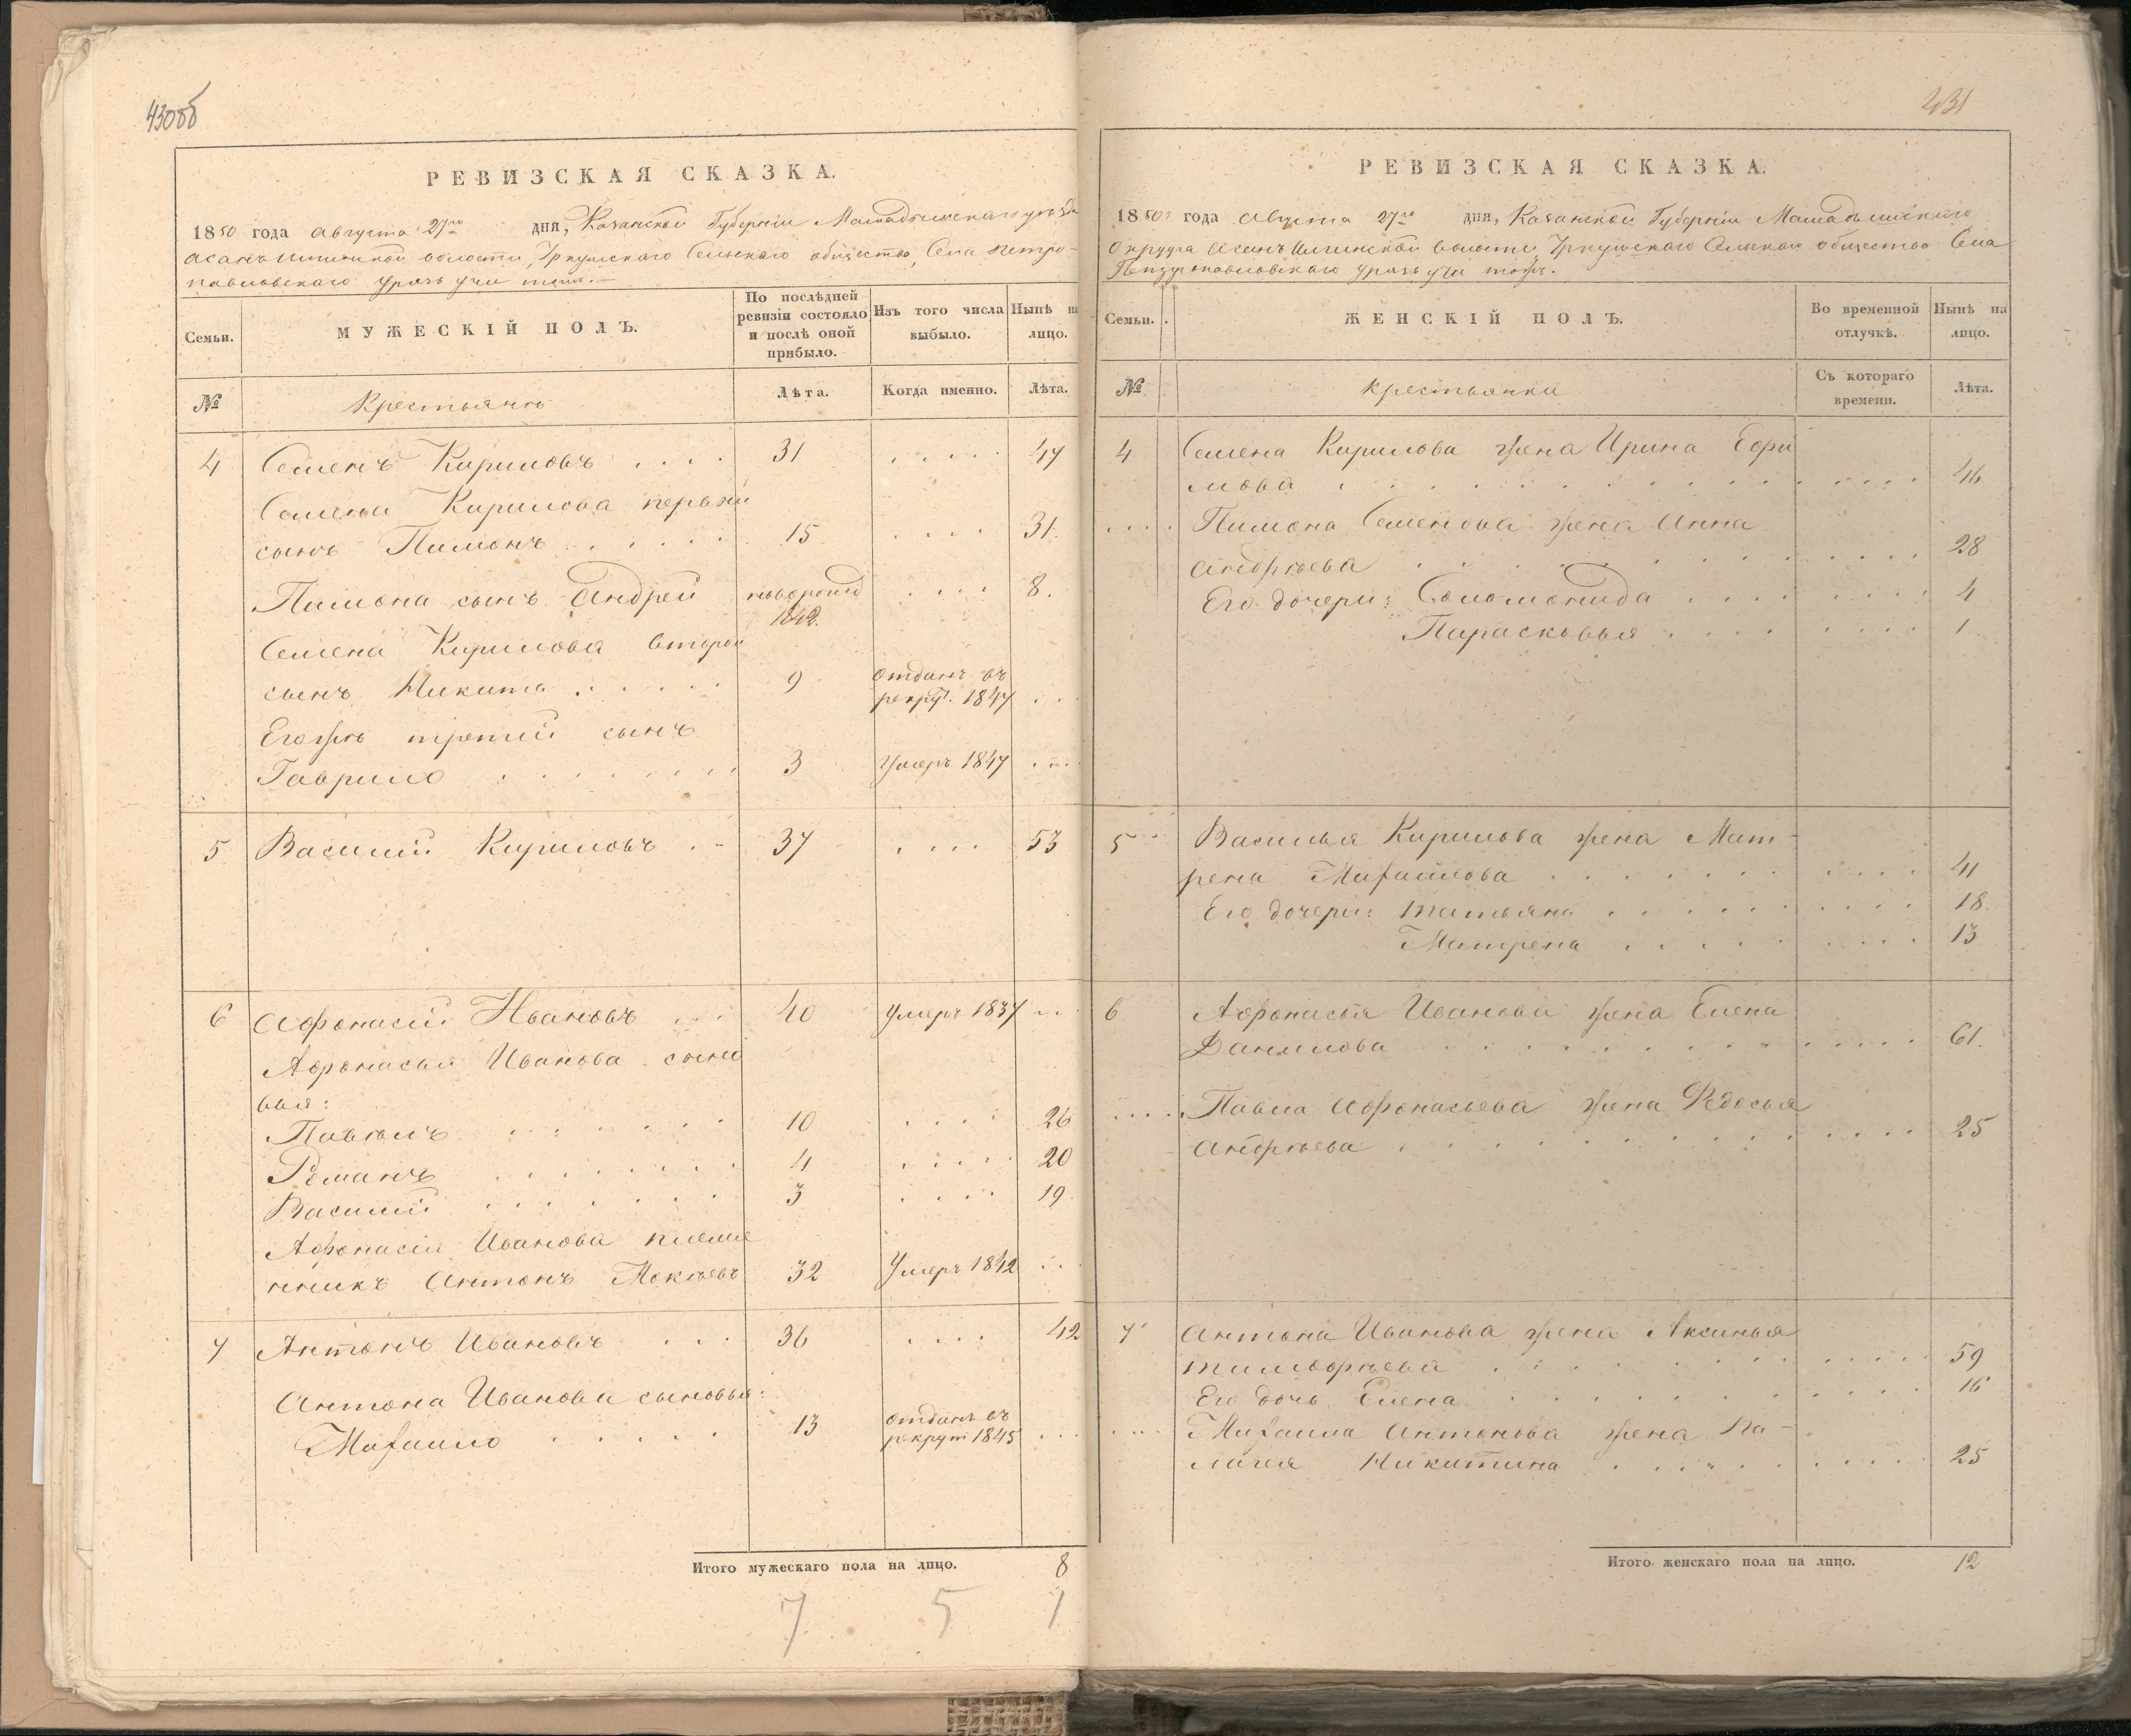 430об
РЕВИЗСКАЯ СКАЗКА.
1850 года Августа 27го дня, Казанской Губернiи Мамадышскаго уѣзда
волости, Сельскаго общества, Села Петро-
павловскаго
Семьи.
МУЖЕСКІЙ ПОЛЪ.
По послѣдней ревизіи состояло и послѣ оной прибыло.
Изъ того числа выбыло.
Нынѣ на лицо.
№
Крестьянъ
Лѣта.
Когда именно.
Лѣта.
4 Семенъ Кириловъ .... 31 ..... 47
Семена Кирилова первый
сынъ Пимонъ ..... 15 .... 31.
Пимона сынъ Андрей новорожд .... 8.
1842.
Семена Кирилова второй
сынъ Никита ..... 9 отданъ въ
рекрут. 1847 ...
Егожъ третiй сынъ
Гаврило ....... 3 Умеръ 1847 ....
5 Василiй Кириловъ .. 37 .... 53
6 Афонасiй Ивановъ ... 40 Умеръ 1837 ...
Афонасья Иванова сыно
вья:
Павелъ ...... 10 .... 26
Романъ ...... 4 ..... 20
Василiй ...... 3 .... 19.
Афонасiя Иванова племя
нникъ Антонъ Мокѣевъ 32 Умеръ 1842 ...
7 Антонъ Ивановъ ... 36 .... 42
Антона Иванова сыновья:
Михаило ..... 13 отданъ въ
рекрут 1845 ...
Итого мужескаго пола на лицо. 8
7 5 1
431
РЕВИЗСКАЯ СКАЗКА.
1850 года Августа 27го дня, Казанской Губернiи Мамадышскаго
Округа волости Сельскаго общества Села
Петропавловскаго
Семьи.
ЖЕНСКІЙ ПОЛЪ.
Во временной отлучкѣ.
Нынѣ на лицо.
№
Крестьянки
Съ котораго времени.
Лѣта.
4 Семена Кирилова жена Ирина Ефи
мова ........ 46
.... Пимона Семенова жена Анна
Андрѣева ........ 28
Его дочери: Соломонида ........ 4
Парасковья ........ 1
5 Василья Кирилова жена Мат-
рена Михайлова ........ 41
Его дочери: Татьяна ........ 18.
Матрена ........ 13
6 Афонасья Иванова жена Елена
Данилова ........ 61.
.... Павла Афонасьева жена Федосья
Андрѣева ........ 25
7 Антона Иванова жена Аксинья
Тимофѣева ........ 59
Его дочь Елена ........ 16
.... Михаила Антонова жена Па-
лагея Никитина ........ 25
Итого женскаго пола на лицо. 12